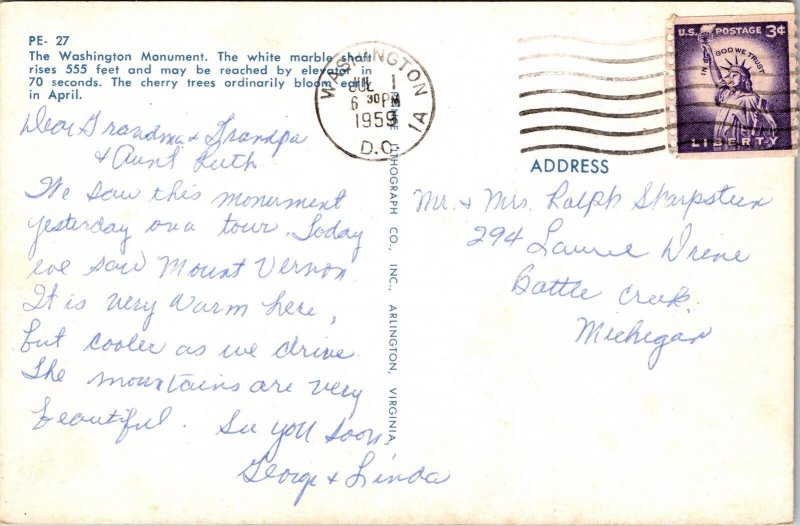 PE- 27
The Washington Monument. The white marble shaft
rises 555 feet and may be reached by elevator in
70 seconds. The cherry trees ordinarily bloom early
in April.
Dear Grandma & Grandpa
& Aunt Ruth
We saw this monument
yesterday on a tour. Today
we saw Mount Vernon.
It is very warm here,
but cooler as we drive.
The mountains are very
beautiful. See you soon,
George & Linda
LITHOGRAPH CO., INC., ARLINGTON, VIRGINIA
WASHINGTON
JUL 1
6 30 PM
1959
D.C.
1A
U.S. POSTAGE 3¢
IN GOD WE TRUST
LIBERTY
ADDRESS
Mr. & Mrs. Ralph Sharpsteen
294 Laurel Drive
Battle Creek,
Michigan